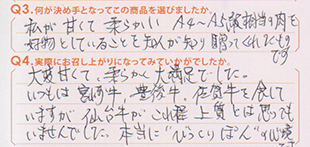 Q3.何が決め手となってこの商品を選びましたか。
私が甘くて柔らかい A4〜A5級相当の肉を
好物としていることを知人が知り贈ってくれたもの
です
Q4.実際にお召し上がりになってみていかがでしたか。
大変甘くて、柔らかく大満足でした。
いつもは宮崎牛、豊後牛、佐賀牛を食して
いますが仙台牛がこれ程上質とは思っても
いませんでした。本当に"びっくりぽん"